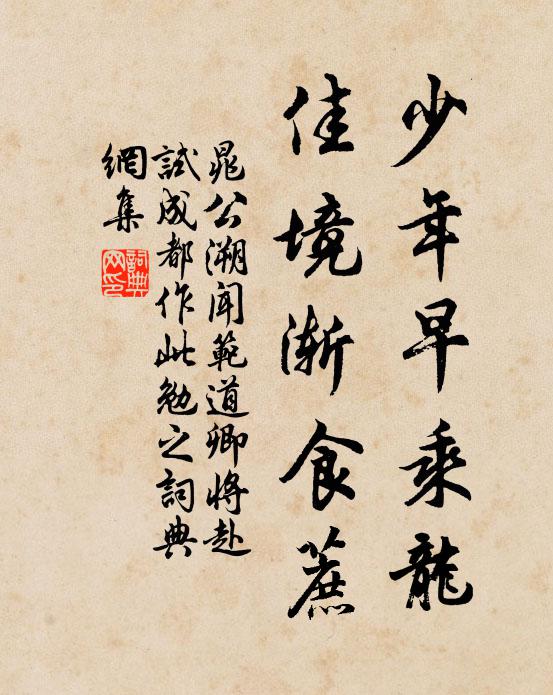 少年早乘龍
佳境渐食蔗
晁公溯闻範道卿将赴
試成都作此勉之詞典
網集
詞典
网印